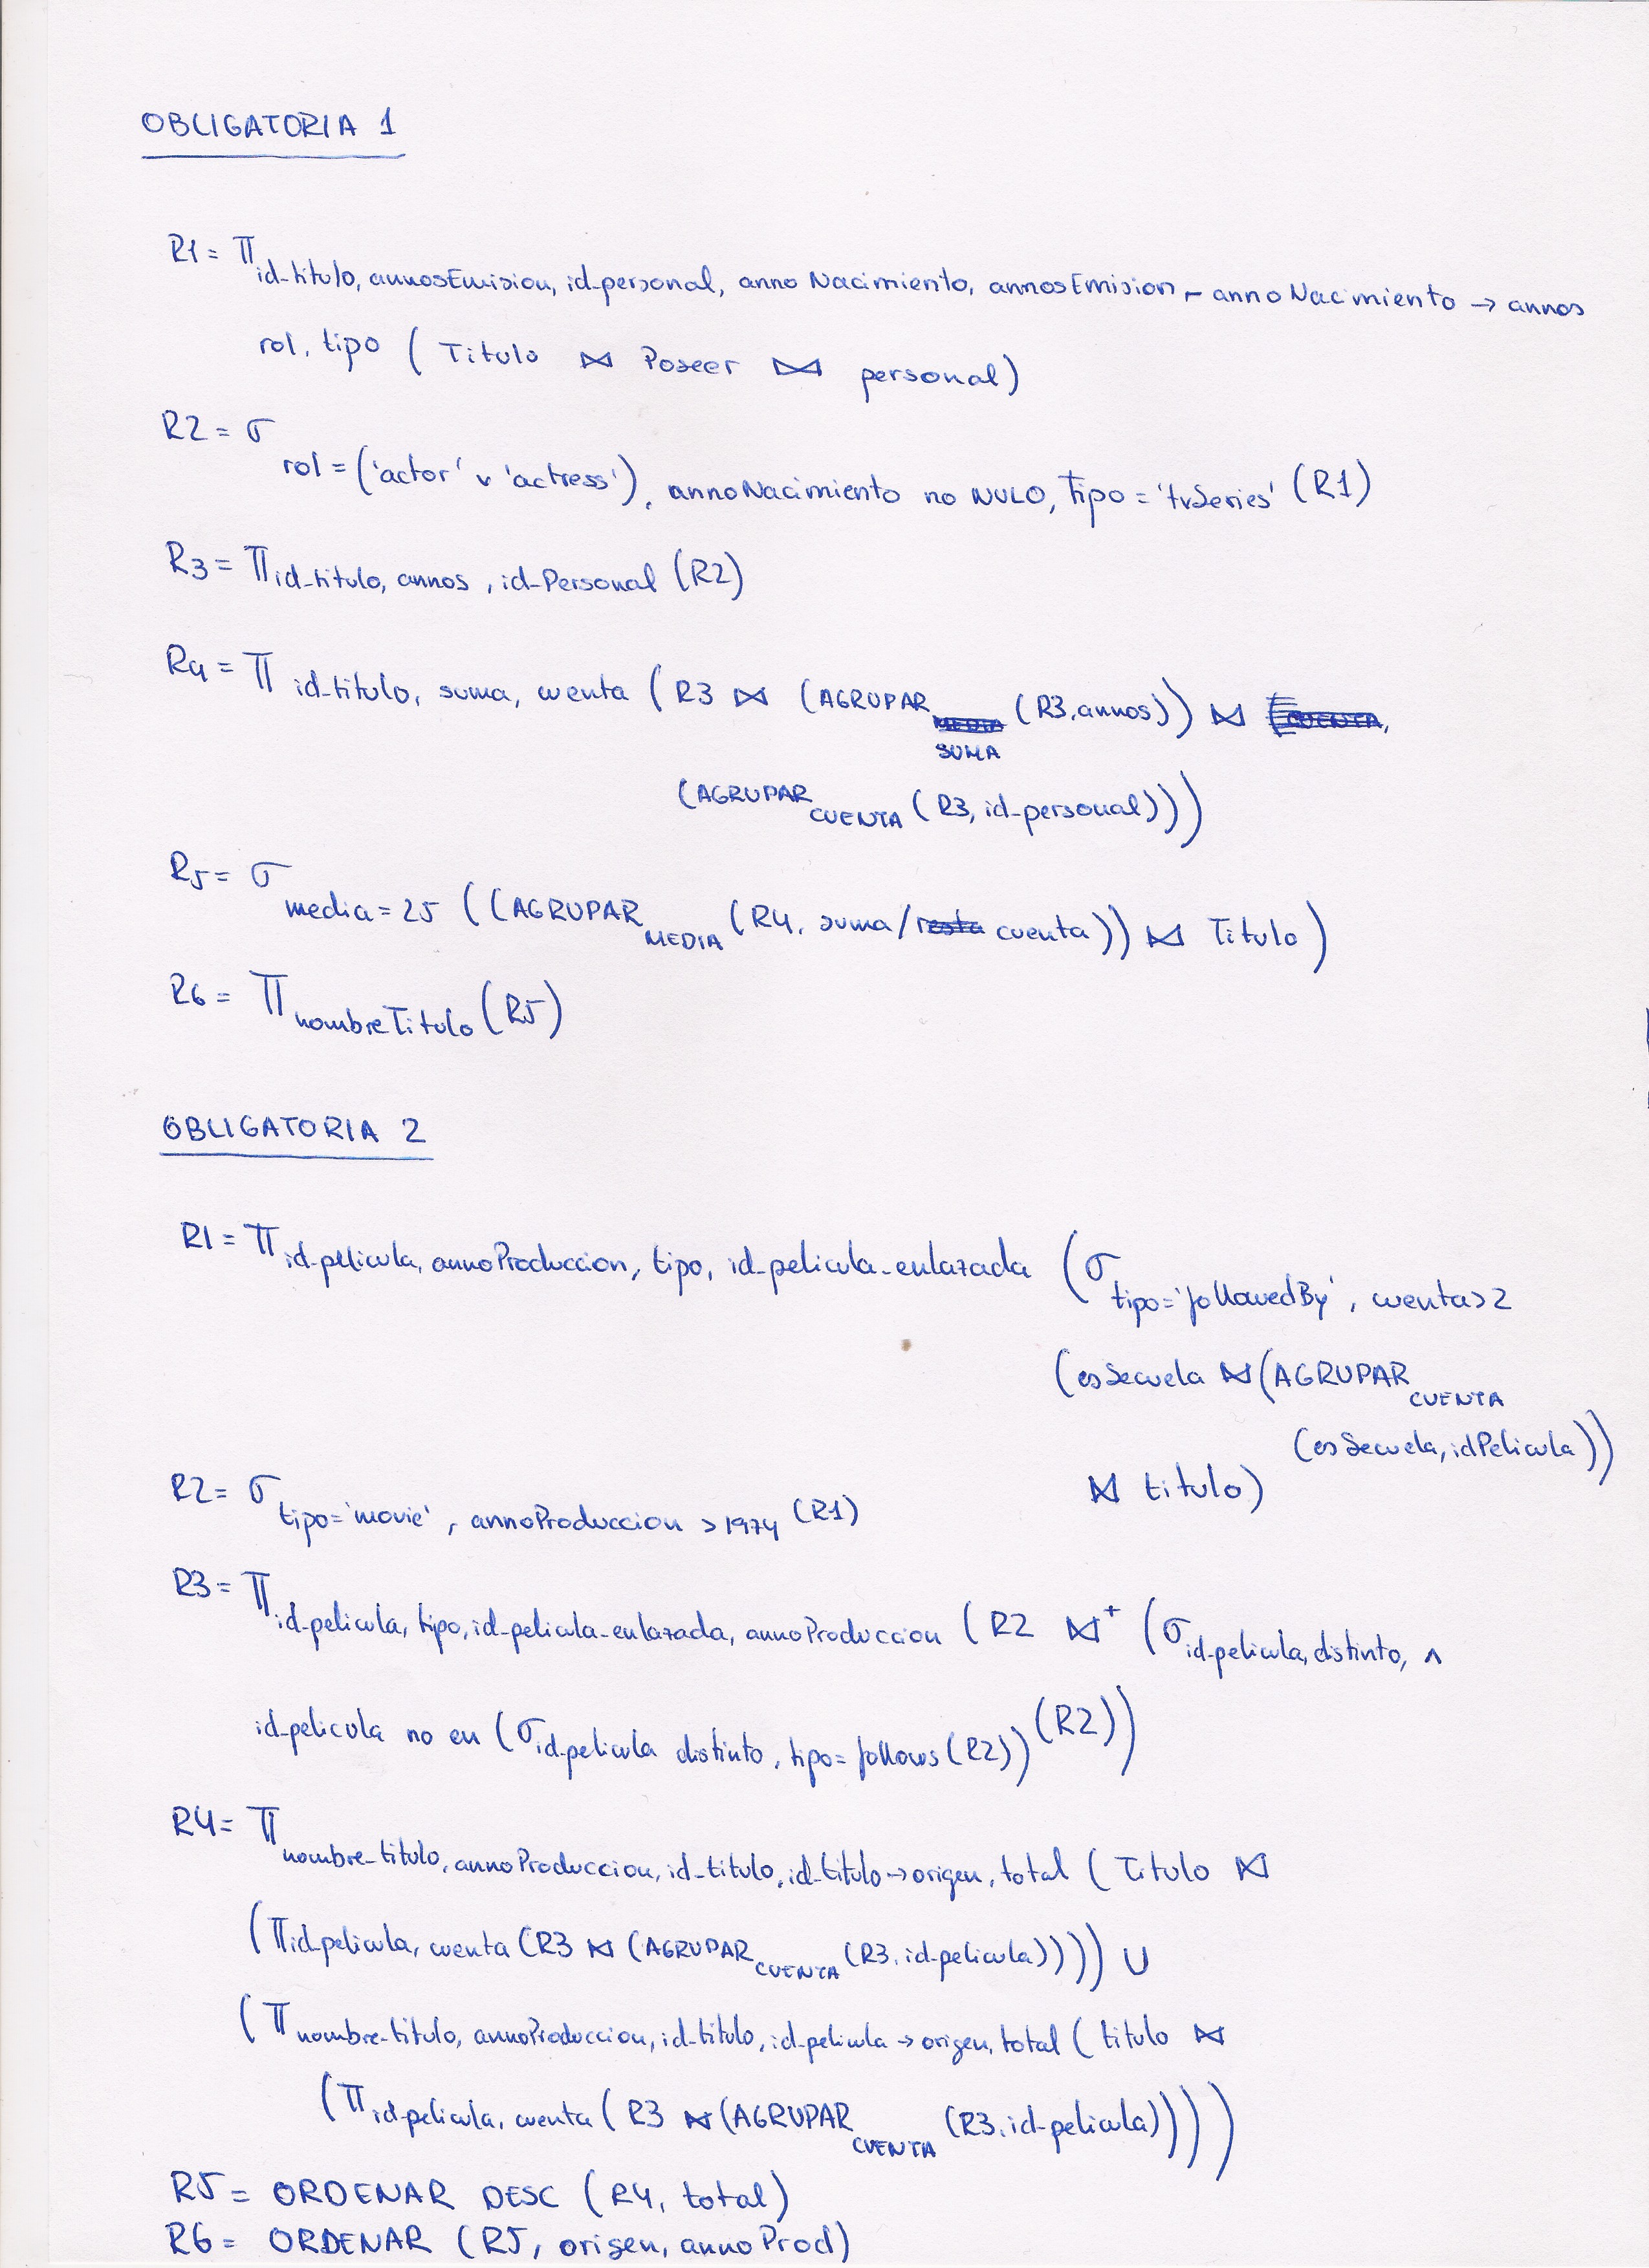 OBLIGATORIA 1
R1 = π id_titulo, annosEmision, id_personal, annoNacimiento, annosEmision - annoNacimiento → annos
rol, tipo ( Titulo ⋈ Poseer ⋈ personal)
R2 = σ rol = ('actor' v 'actress'), annoNacimiento no NULO, Tipo = 'tvSeries' (R1)
R3 = π id_titulo, annos, id_Personal (R2)
R4 = π id_titulo, suma, cuenta ( R3 ⋈ (AGRUPAR SUMA (R3, annos)) ⋈
(AGRUPAR CUENTA (R3, id_personal)))
R5 = σ media = 25 ((AGRUPAR MEDIA (R4, suma/resta cuenta)) ⋈ Titulo)
R6 = π nombreTitulo (R5)
OBLIGATORIA 2
R1 = π id_pelicula, annoProduccion, tipo, id_pelicula_enlazada (σ tipo='followedBy', cuenta>2
(esSecuela ⋈ (AGRUPAR CUENTA
(esSecuela, idPelicula))
⋈ titulo)
R2 = σ tipo='movie', annoProduccion > 1974 (R1)
R3 = π id_pelicula, tipo, id_pelicula_enlazada, annoProduccion (R2 ⋈⁺ (σ id_pelicula, distinto, ∧
id_pelicula no en (σ id_pelicula distinto, tipo=follows (R2)) (R2))
R4 = π nombre_titulo, annoProduccion, id_titulo, id_titulo → origen, total ( Titulo ⋈
(π id_pelicula, cuenta (R3 ⋈ (AGRUPAR CUENTA (R3, id_pelicula)))) ∪
(π nombre_titulo, annoProduccion, id_titulo, id_pelicula → origen, total ( titulo ⋈
(π id_pelicula, cuenta ( R3 ⋈ (AGRUPAR CUENTA (R3, id_pelicula))))
R5 = ORDENAR DESC (R4, total)
R6 = ORDENAR (R5, origen, annoProd)